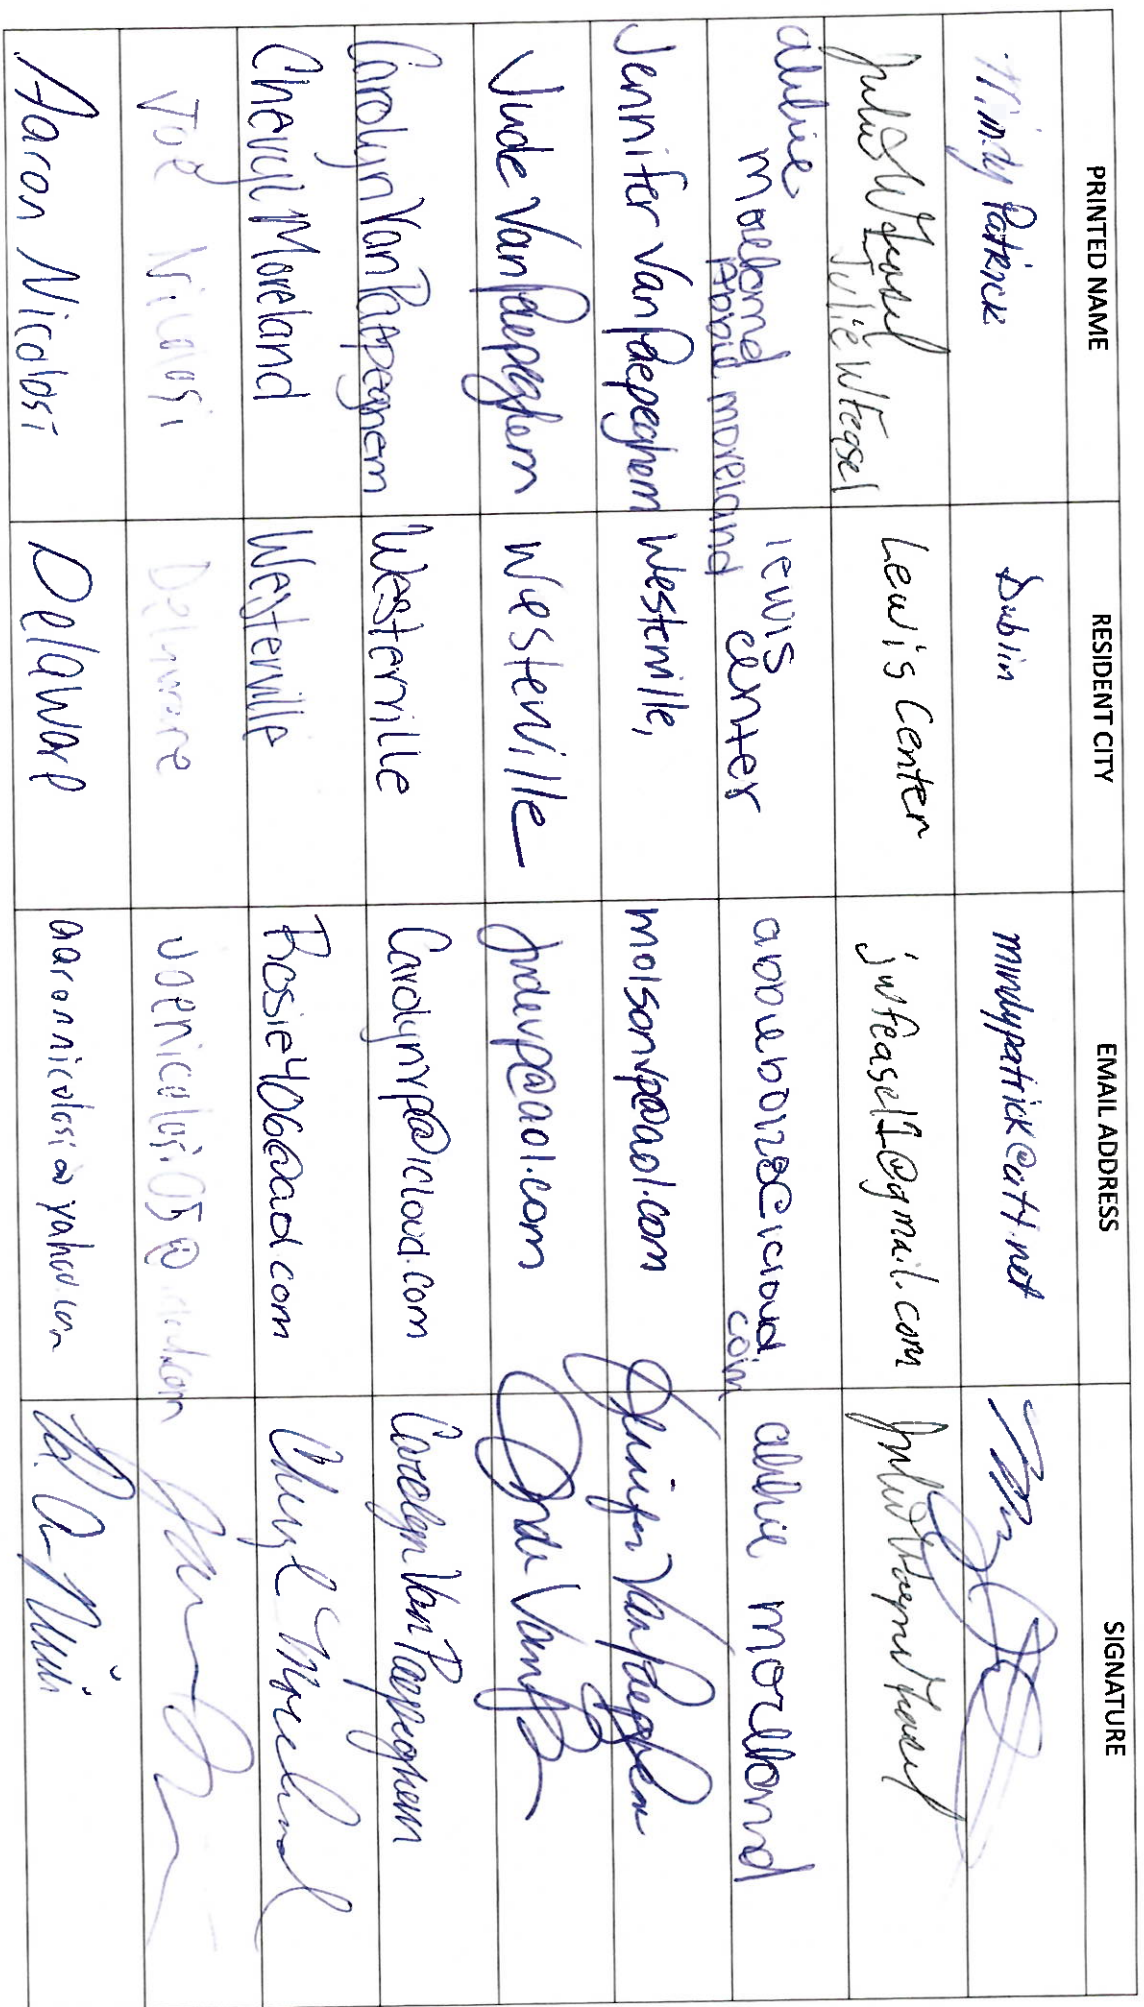 PRINTED NAME RESIDENT CITY EMAIL ADDRESS SIGNATURE
Mindy Patrick Dublin mindypatrick@att.net
Julie W Feasel Lewis Center jwfeasel1@gmail.com
Julie W Feasel
abbie moreland lewis center abbiebo128@icloud.com abbie moreland
Abbie moreland
Jennifer VanPaepeghem Westerville, molsonvp@aol.com Jennifer VanPaepeghem
Jude VanPaepeghem Westerville judevp@aol.com Jude
Carolyn VanPaepeghem Westerville Carolynvp@icloud.com Carolyn VanPaepeghem
Cheryl Moreland Westerville Rosie406@aol.com Cheryl Moreland
Joe Nicolosi Delaware
Aaron Nicolosi Delaware aaronnicolosi@yahoo.com